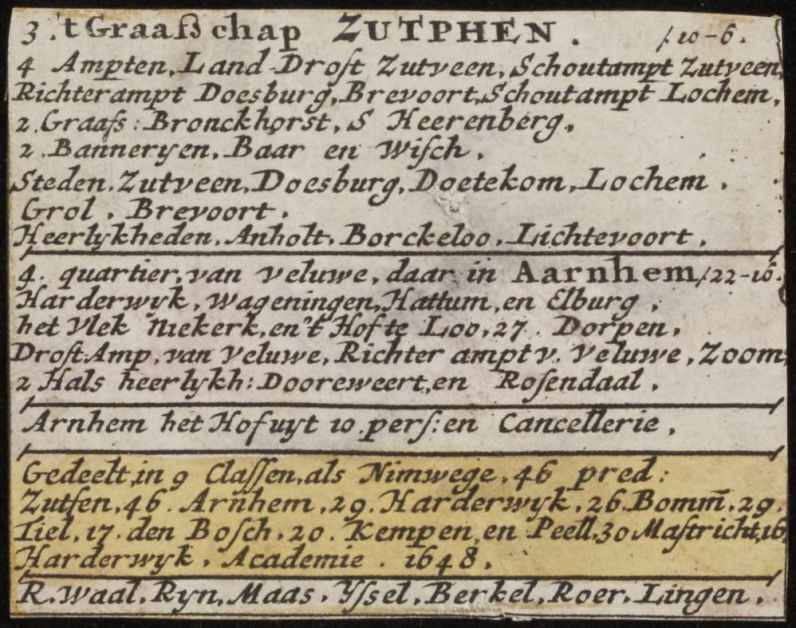 3. 't Graafschap ZUTPHEN. / 10-6.
4 Ampten, Land-Drost Zutveen, Schoutampt Zutveen,
Richterampt Doesburg, Brevoort, Schoutampt Lochem,
2. Graafs: Bronckhorst, S Heerenberg,
2. Banneryen, Baar en Wisch,
Steden. Zutveen, Doesburg, Doetekom, Lochem,
Grol, Brevoort,
Heerlykheden, Anholt, Borckeloo, Lichtevoort,
4. quartier, van Veluwe, daar in Aarnhem / 22-16.
Harderwyk, Wageningen, Hattum, en Elburg,
het Vlek Niekerk, en 't Hof te Loo, 27. Dorpen,
Drost-Amp, van Veluwe, Richter ampt v. Veluwe, Zoom,
2 Hals heerlykh: Dooreweert, en Rosendaal,
Arnhem het Hof uyt 10 pers: en Cancellerie,
Gedeelt in 9 Classen, als Nimwege, 46 pred:
Zutfen, 46. Arnhem, 29. Harderwyk, 26. Bomm̄, 29.
Tiel, 17. den Bosch, 20. Kempen, en Peell, 30 Mastricht, 16,
Harderwyk, Academie. 1648,
R. Waal, Ryn, Maas, Yssel, Berkel, Roer, Lingen,